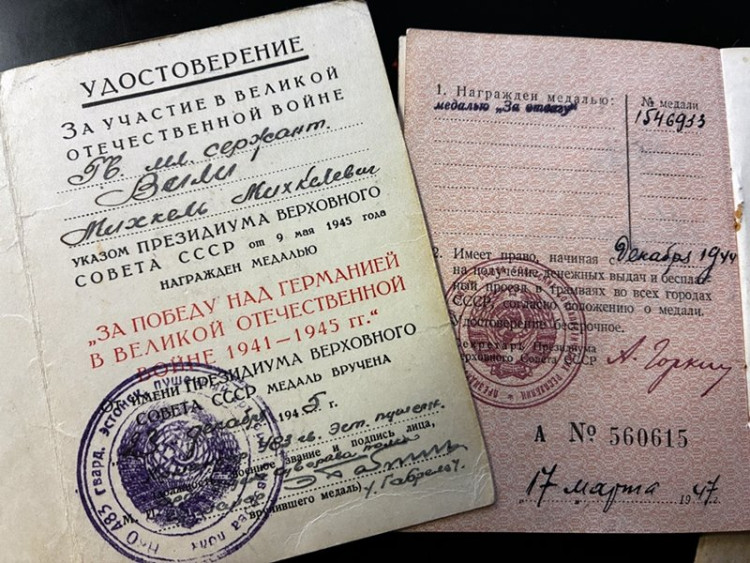 УДОСТОВЕРЕНИЕ
ЗА УЧАСТИЕ В ВЕЛИКОЙ
ОТЕЧЕСТВЕННОЙ ВОЙНЕ
Гв. мл. сержант.
Михкель Михкелевич
УКАЗОМ ПРЕЗИДИУМА ВЕРХОВНОГО
СОВЕТА СССР от 9 мая 1945 года
НАГРАЖДЕН МЕДАЛЬЮ
„ЗА ПОБЕДУ НАД ГЕРМАНИЕЙ
В ВЕЛИКОЙ ОТЕЧЕСТВЕННОЙ
ВОЙНЕ 1941—1945 гг.“
ОТ ИМЕНИ ПРЕЗИДИУМА ВЕРХОВНОГО
СОВЕТА СССР МЕДАЛЬ ВРУЧЕНА
декабря 1945 г.
звание и подпись лица,
М. вручившего медаль)
1. Награжден медалью:
№ медали
медалью „За отвагу“
1546933
2. Имеет право, начиная с декабря 1944
на получение денежных выдач и бесплат-
ный проезд в трамваях во всех городах
СССР, согласно положению о медали.
Удостоверение бессрочное.
Секретарь Президиума
Верховного Совета СССР
А. Горкин
А № 560615
17 марта 1947